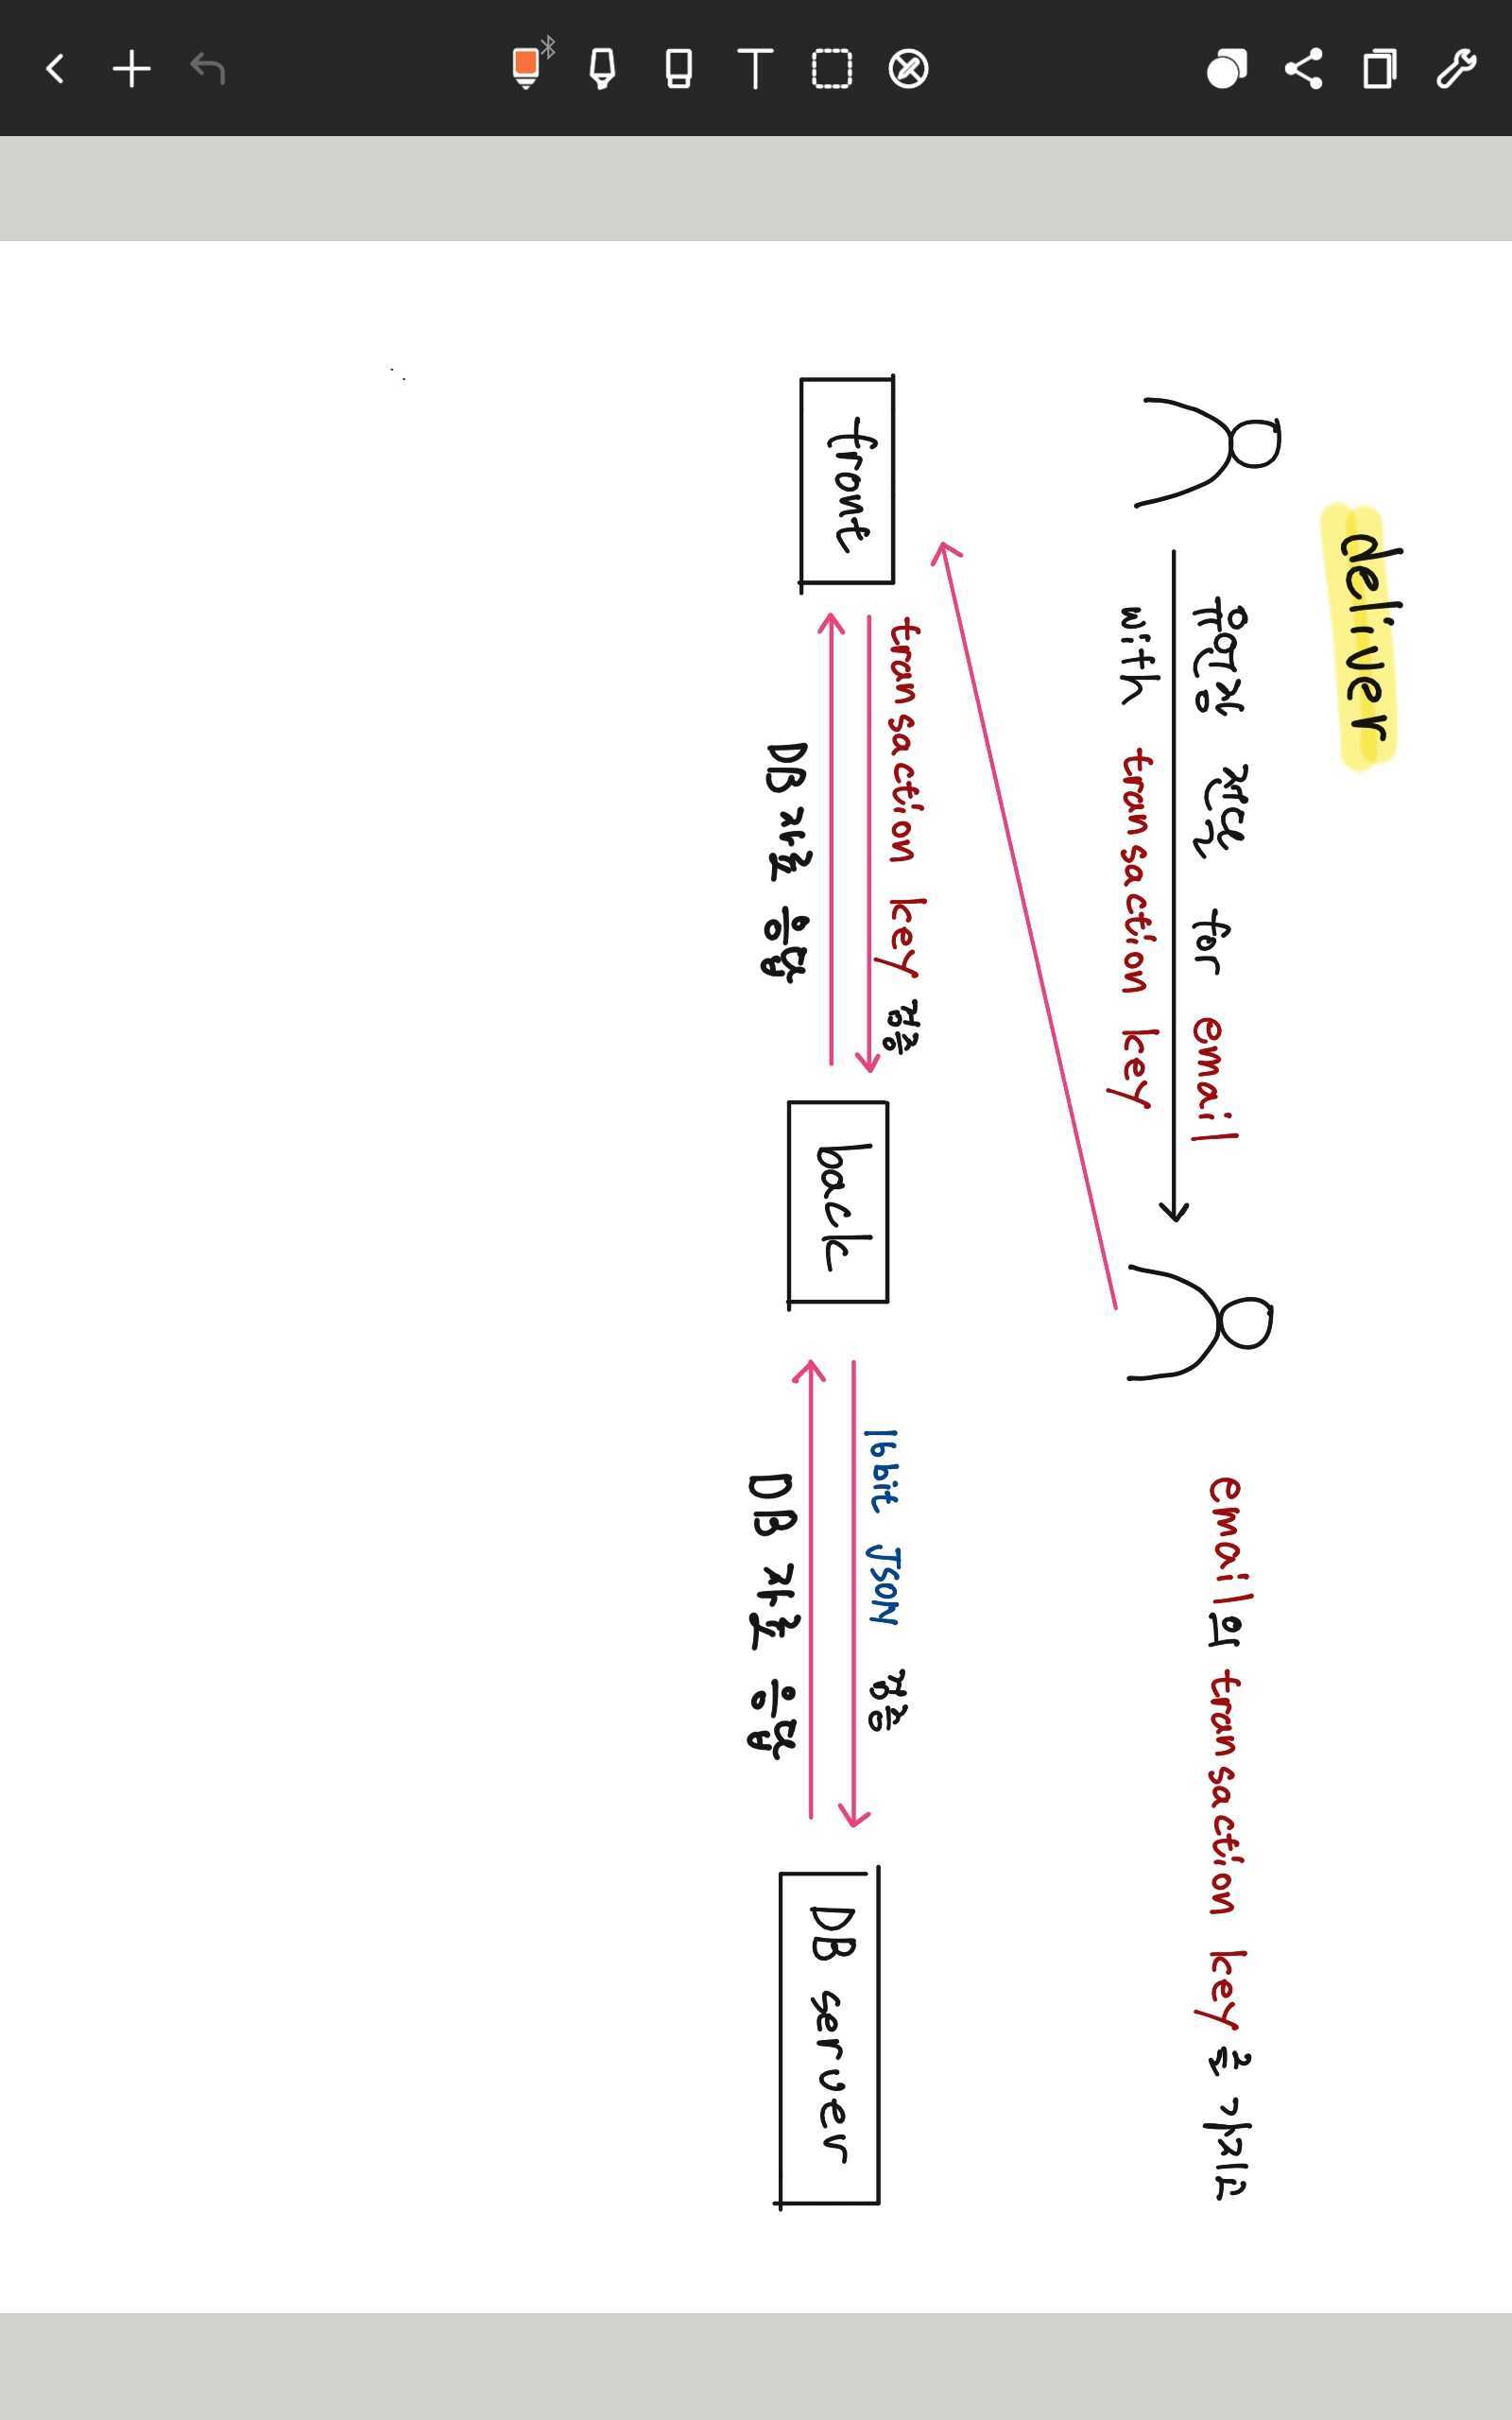 deliver
유언장 전달 for email
with transaction key
email의 transaction key를 가지고
transaction key 검증
front
back
DB 자료 응답
16bit JSON 검증
DB server
DB 자료 응답